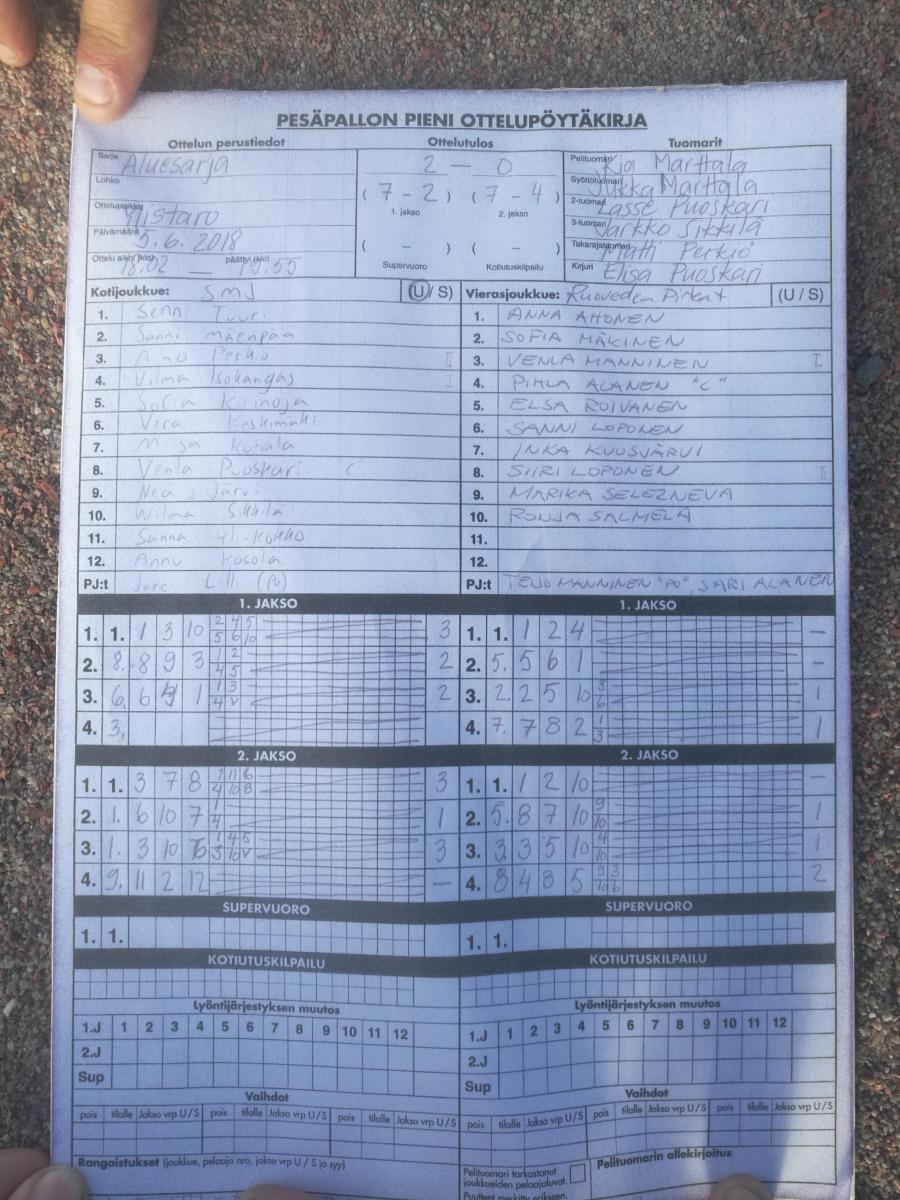 PESÄPALLON PIENI OTTELUPÖYTÄKIRJA
Ottelun perustiedot Ottelutulos Tuomarit
Sarja Aluesarja
Lohko
Ottelupaikka Ylistaro
Päivämäärä 5.6. 2018
Ottelu alkoi (klo) 18.02 — päättyi (klo) 19.55
2 — 0
( 7 - 2 ) ( 7 - 4 )
1. jakso 2. jakso
( - ) ( - )
Supervuoro Kotiutuskilpailu
Pelituomari Marttala
Syöttötuomari Jukka Marttala
2-tuomari Lasse Puoskari
3-tuomari Jarkko Sikkilä
Takarajatuomari Matti Perkiö
Kirjuri Elisa Puoskari
Kotijoukkue: SMJ (U / S) Vierasjoukkue: Ruoveden Pirkat (U / S)
1. Senni Tuuri 1. ANNA AHONEN
2. Sanni Mäenpää 2. SOFIA MÄKINEN
3. Anu Perko II 3. VENLA MANNINEN I
4. Vilma Isokangas I 4. PIHLA ALANEN "C"
5. Sofia Kitinoja 5. ELSA ROIVANEN
6. Vera Keskimäki 6. SANNI LOPONEN
7. Miisa Kotala 7. INKA KUUSJÄRVI
8. Venla Puoskari C 8. SIIRI LOPONEN II
9. Nea Järvi 9. MARIKA SELEZNEVA
10. Wilma Sikkilä 10. RONJA SALMELA
11. Sanna Yli-Kokko 11.
12. Annu Kosola 12.
PJ:t Jere Lilli (PJ) PJ:t TEIJO MANNINEN "PJ", SARI ALANEN
1. JAKSO 1. JAKSO
1. 1. 1 3 10 2 4 5 5 6 10 3 1. 1. 1 2 4 —
2. 8. 8 9 3 1 2 4 5 2 2. 5. 5 6 1 —
3. 6. 6 1 1 3 4 V 2 3. 2. 2 5 10 3 6 1
4. 3. 4. 7. 7 8 2 1 3 1
2. JAKSO 2. JAKSO
1. 1. 3 7 8 1 11 6 4 10 8 3 1. 1. 1 2 10 —
2. 1. 6 10 7 1 4 1 2. 5. 8 7 10 9 10 1
3. 1. 3 10 1 4 5 3 10 V 3 3. 3 3 5 10 4 10 1
4. 9. 11 2 12 — 4. 8 4 8 5 9 3 10 6 2
SUPERVUORO SUPERVUORO
1. 1. 1. 1.
KOTIUTUSKILPAILU KOTIUTUSKILPAILU
Lyöntijärjestyksen muutos Lyöntijärjestyksen muutos
1.J 1 2 3 4 5 6 7 8 9 10 11 12 1.J 1 2 3 4 5 6 7 8 9 10 11 12
2.J 2.J
Sup Sup
Vaihdot Vaihdot
pois tilalle Jakso vrp U / S pois tilalle Jakso vrp U / S pois tilalle Jakso vrp U / S pois tilalle Jakso vrp U / S pois tilalle Jakso vrp U / S pois tilalle Jakso vrp U / S
Rangaistukset (joukkue, pelaaja nro, jakso vrp U / S ja syy)
Pelituomari tarkastanut joukkueiden pelaajaluvat. Pelituomarin allekirjoitus
Puutteet merkitty erikseen.